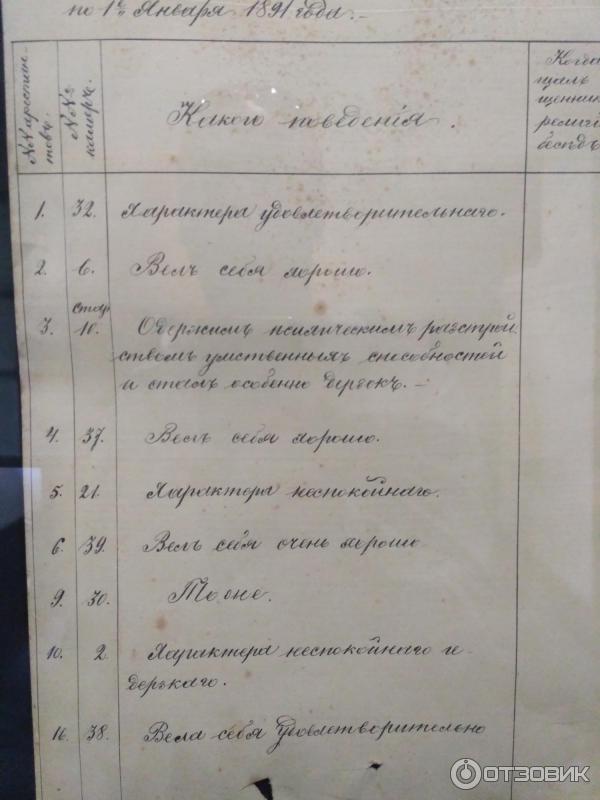 по 1е Января 1891 года.-
№№ арестан-
товъ.
№№
камеръ.
Какого поведенія.
Когда
щал
щенник
религі
бесѣдъ
1. 32. Характера удовлетворительнаго.
2. 6. Велъ себя хорошо.
стар
3. 10. Одержимъ психическимъ разстрой
ствомъ умственныхъ способностей
и сталъ особенно дерзокъ. -
4. 37. Велъ себя хорошо.
5. 21. Характера неспокойнаго.
6. 39. Велъ себя очень хорошо
9. 30. Тоже.
10. 2 Характера неспокойнаго и
дерзкаго.
16. 38. Вела себя удовлетворительно
ОТЗОВИК